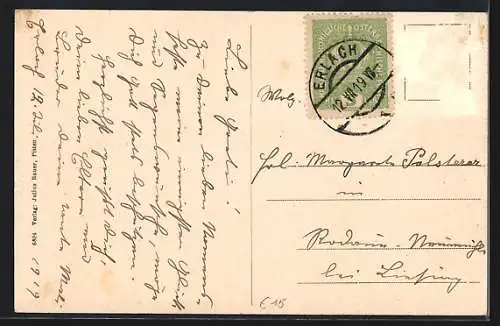 Liebe Greti!
Zu Deinem lieben Namens
feste meine innigsten Glück
und Segenswünsche, möge
Dich Gott stets beschützen.
Herzlichst grüßt Dich,
Deine lieben Eltern und
Bruder Deine
Erlach 12. Juli 1919
6824 Verlag: Julius Bauer,
ERLACH
12.VII.19
Frl. Margarete Polsterer
in
Rodaun-Neumühle
bei Liesing
€ 15